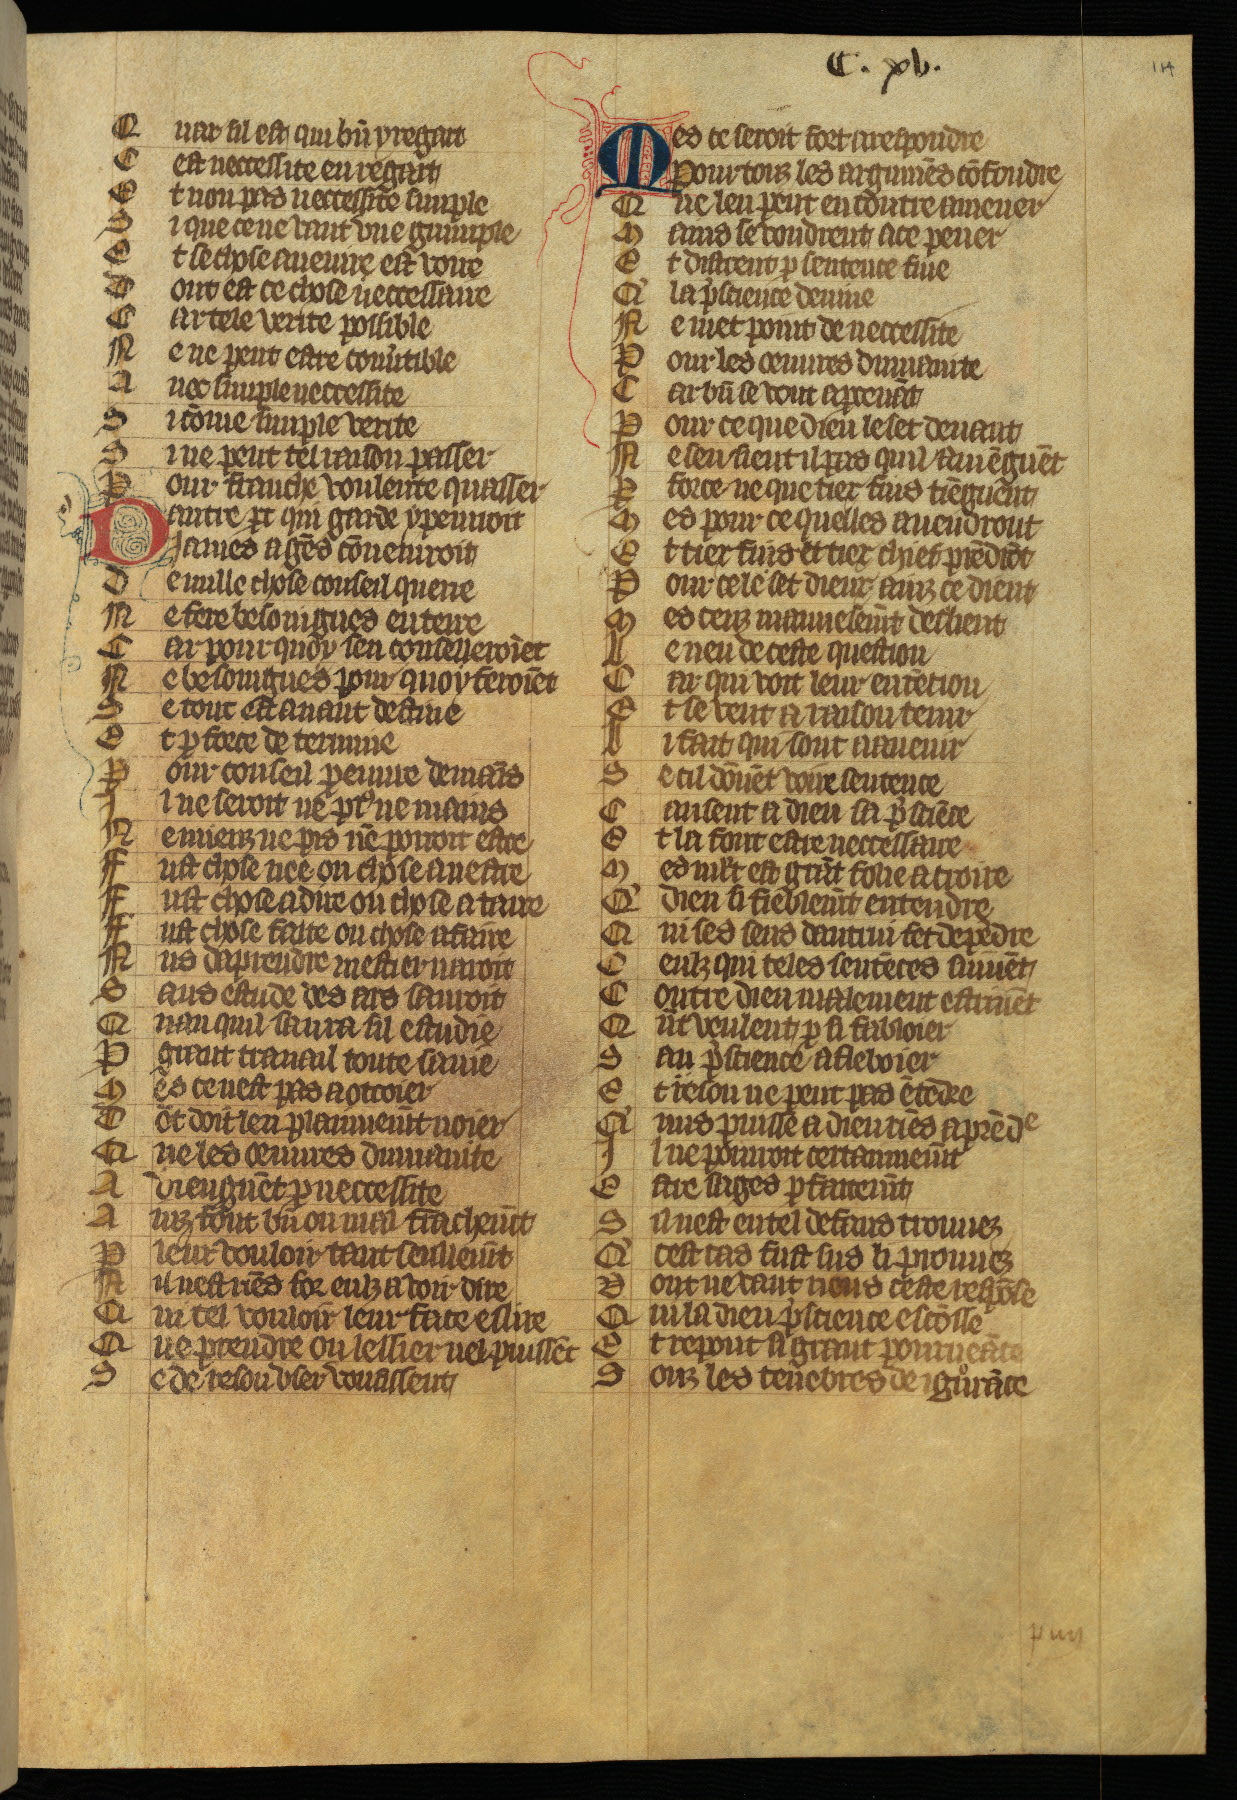 C. xv.
114
Q uar sil est qui bn̄ y regart
C est neccessite en regart
E t non pas neccessite simple
S i que ce ne vaut vne guimple
E t se chose auenire est voire
D ont est ce chose neccessaire
C ar tele verite possible
N e ne peut estre conu̾tible
A uec simple neccessite
S i cōme simple verite
S i ne peut tel raison passer
P our franche voulente quasser
Dautre pt qui garde y penrroit
James a gēs cōuenroit
D e nulle chose conseil querre
N e fere besoingnes en terre
C ar pour quoy sen conselleroiēt
N e besoingnes pour quoy feroiēt
S e tout est auant destine
E t p force de termine
P our conseil p euure de mais
J l ne seroit ne pl9 ne mains
N e mienz ne pis nē porroit estre
F ust chose nee ou chose a nestre
F ust chose a dire ou chose a taire
F ust chose faite ou chose a faire
N us daprendre mestier naroit
S ans estude des ars sauroit
Q uan quil saura sil estudie
P grant trauail toute sa uie
M es ce nest pas a ottoier
D ōt doit len plainnemt̄ noier
Q ue les oeuures dumanite
A viengnēt p neccessite
A inz font bn̄ ou mal frāchemt̄
P leur vouloir tant seulemt̄
N il nest riēs for eulz a voir dire
Q ui tel vouloir leur face eslire
Q ue prendre ou lessier nel puissēt
S e de reson vser vousissent
Mes ce seroit fort a respondre
Pour touz les argumēs cōfondre
Q ue len peut encontre amener
M ains se voudrent a ce pener
E t distrent p sentence fine
Q' la p̾science deuine
N e met point de neccessite
P our les oeuures dumanite
C ar bn̄ se vont apceuāt
P our ce que dieu le set deuant
N e sen sient il pas quil auiēgnēt
P force ne que tiex fins tiēgnent
M es pour ce quelles auendront
E t tiex fins et tiex chief prēdrōt
P our ce le set dieux ainz ce dient
M es ceuz mauuesemt̄ deslient
L e neu de ceste question
C ar qui voit leur entētion
E t se veut a raison tenir
L i fait qui sont a auenir
S e cil dōnēt voire sentence
C ausent a dieu sa p̾sciēce
E t la font estre neccessaire
M es mlt est grāt folie a croire
Q' dieu si fieblemt̄ entendre
Q ui ses sens dautrui fet depēdre
C eulz qui teles sentēces suiuēt
C ontre dieu malement estriuēt
Q ūt veulent p si fabloier
S au p̾science afleboier
E t rēson ne peut pas ētēdre
Q' nus puisse a dieu riēs aprēdre
J l ne porroit certainnemt̄
E stre sages pfaitemt̄
S il nest en tel defaus trouuez
Q' cest cas fust sus li prouuez
D ont ne vaut riens ceste respōse
Q ui la dieu p̾science escōsse
E t repont sa grant porueāce
S ouz les tenebres de ignorāce